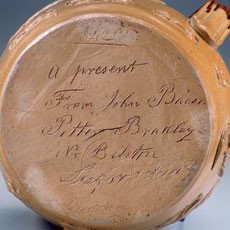 a present
From John Bacon
Potter Bradley
Nr Bilston